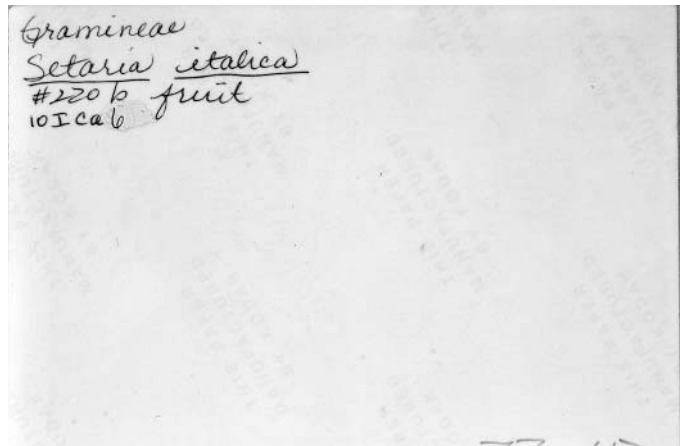 Gramineae
Setaria italica
#220 b fruit
10 I Ca 6